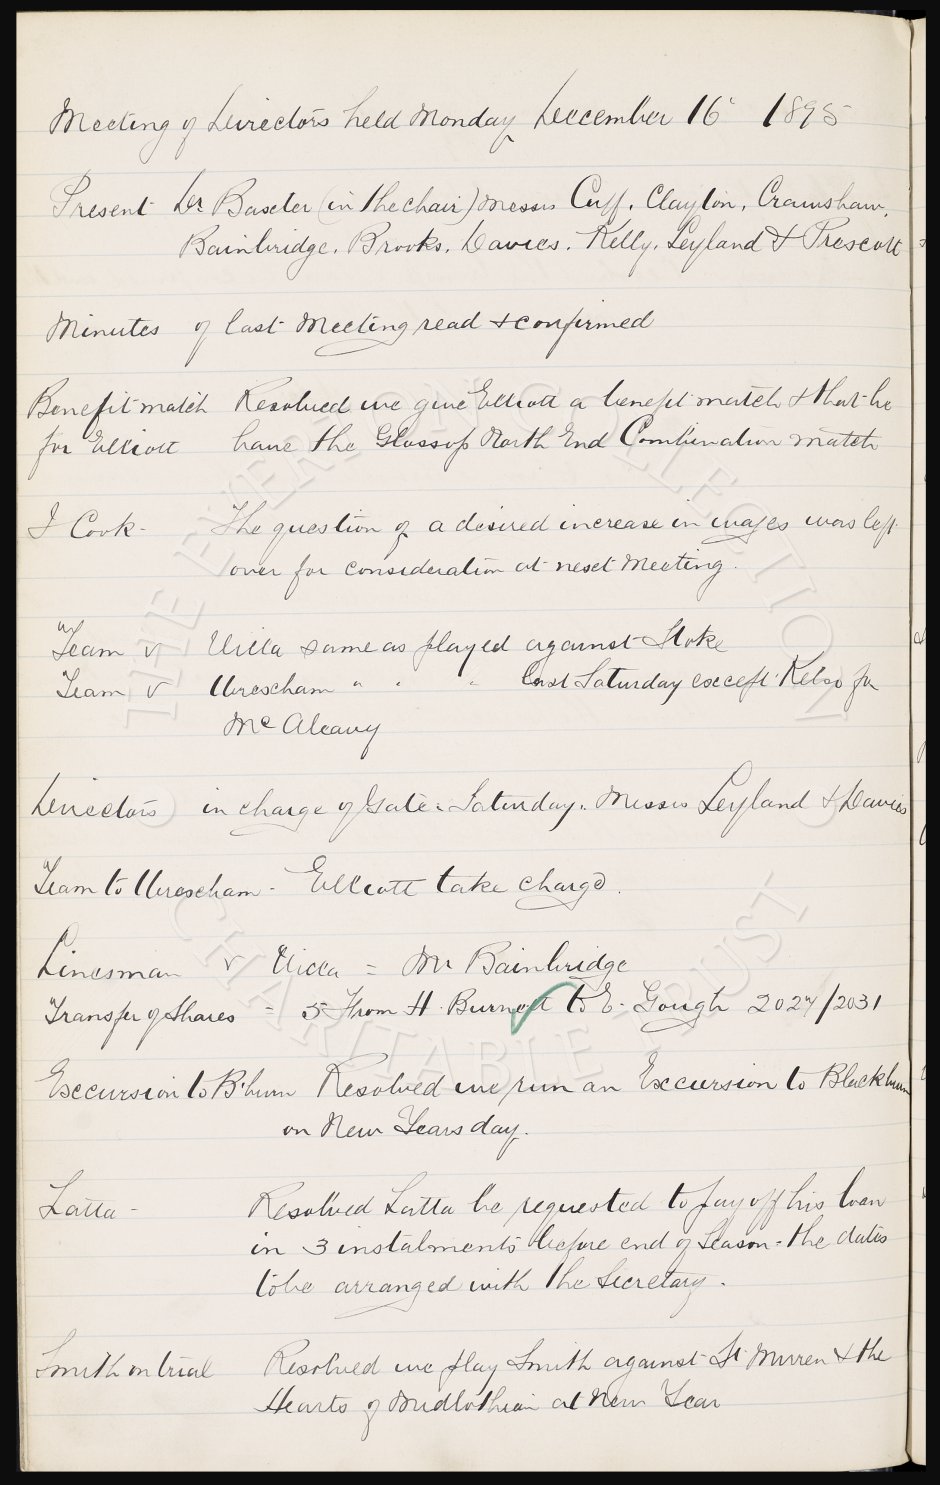 Meeting of Directors held Monday December 16th 1895
Present Dr. Baxter (in the chair) Messrs Cuff, Clayton, Crawshaw,
Bainbridge, Brooks, Davies, Kelly, Leyland & Prescott
Minutes of last Meeting read & confirmed
Benefit match Resolved we give Elliott a benefit match & that he
for Elliott have the Glossop North End Combination match
J Cook - The question of a desired increase in wages was left
over for consideration at next Meeting.
Team v Villa same as played against Stoke
Team v Wrexham " " " last Saturday except Kelso for
McAleavy
Directors in charge of Gate = Saturday. Messrs Leyland & Davies
Team to Wrexham - Elliott take charge.
Linesman v Villa = Mr Bainbridge
Transfer of Shares = 5 From H. Burnett to E. Gough 2027/2031
Excursion to B'burn Resolved we run an Excursion to Blackburn
on New Years day.
Latta - Resolved Latta be requested to pay off his loan
in 3 instalments before end of Season - the dates
to be arranged with the Secretary.
Smith on trial Resolved we play Smith against St Mirren & the
Hearts of Midlothian at New Year
THE EVERTON COLLECTION
CHARITABLE TRUST